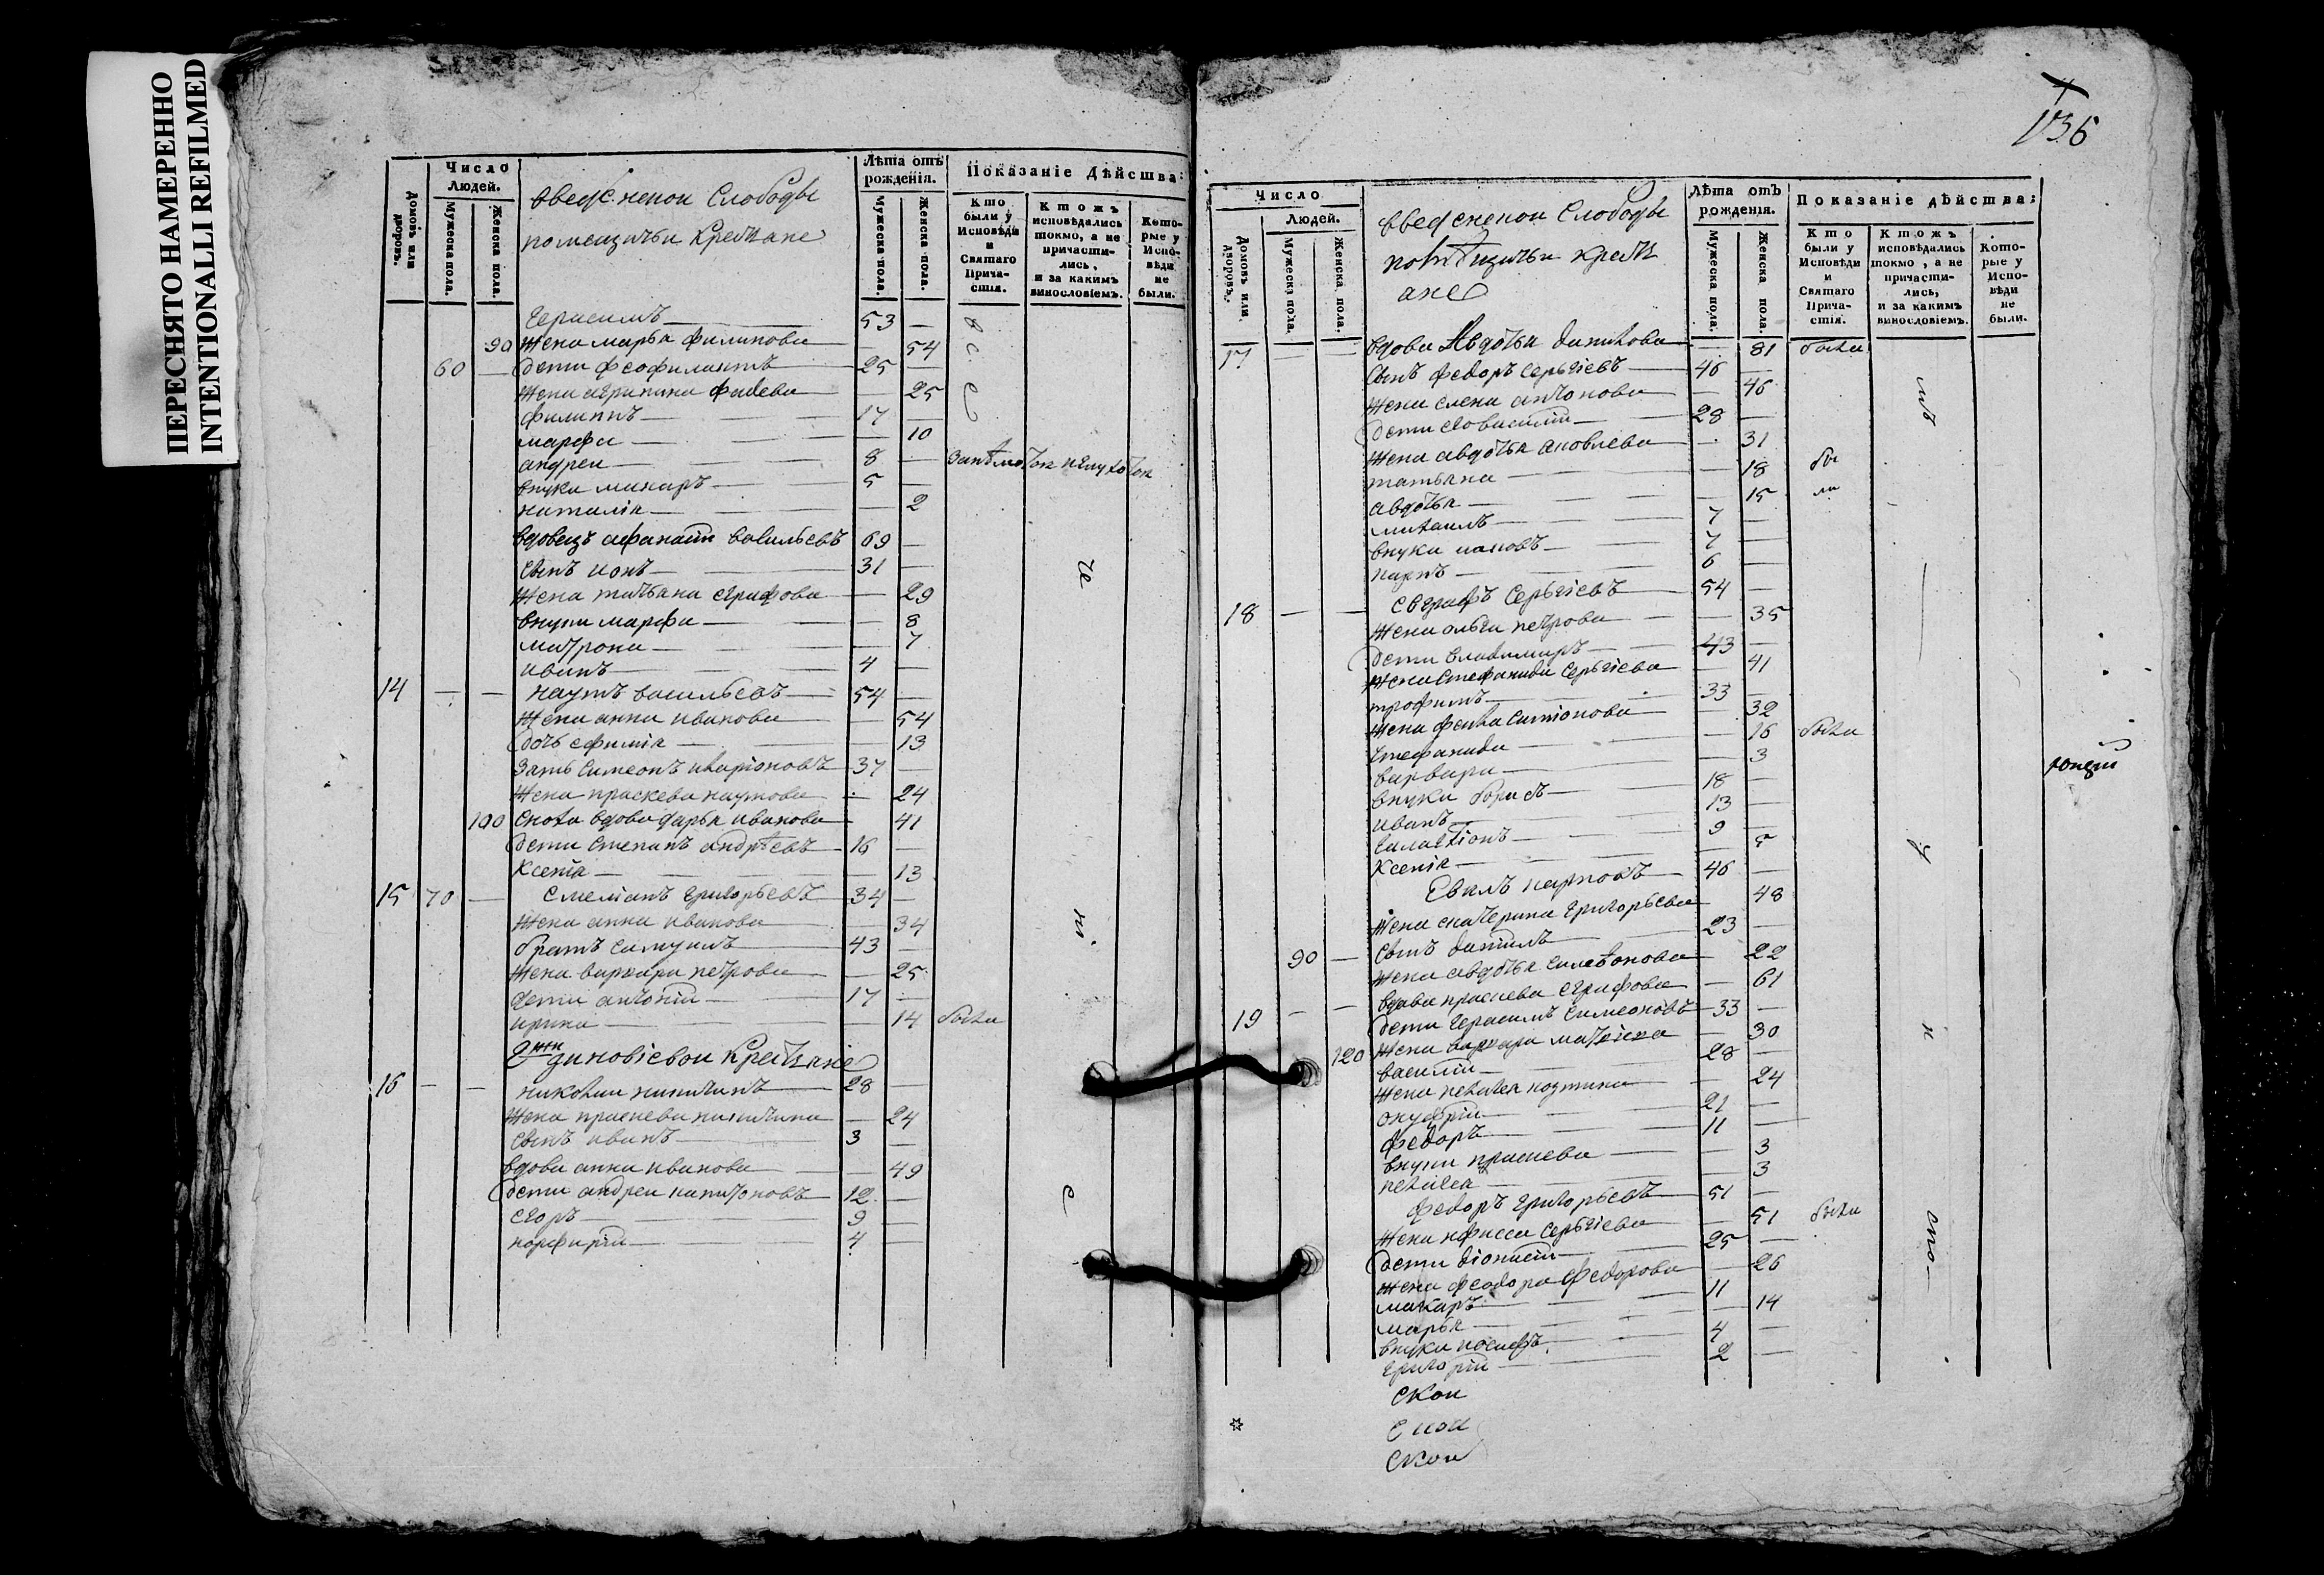 ПЕРЕСНЯТО НАМЕРЕННО
INTENTIONALLI REFILMED
Число
Людей.
Домовъ или дворовъ.
Мужеска пола.
Женска пола.
введененои Слободы
помещичьи Крестиане
Лѣта отъ рожденія.
Мужеска пола.
Женска пола.
Показаніе дѣйства:
Кто были у Исповѣди и Святаго Причастія.
Ктожъ исповѣдались токмо, а не причастились, и за какимъ винословіемъ.
Которые у Исповѣди не были.
Герасимъ 53 —
90 Жена марья филипова — 54
60 — дети феофилактъ 25 —
Жена агрипина фадеева — 25
филиппъ 17 —
марфа — 10
андреи 8 —
внуки макаръ 5 —
наталія — 2
вдовецъ афанасии васильевъ 69 —
сынъ iонъ 31 —
Жена татьяна евграфова — 29
внуки марфа — 8
матрона — 7
иванъ 4 —
14 — — наумъ васильевъ 54 —
Жена анна иванова — 54
дочь ефимія — 13
Зять Симеонъ иларіоновъ 37 —
Жена праскева наумова — 24
100 сноха вдова дарья иванова 41
дети Степанъ андрѣевъ 16 —
Ксенія — 13
15 70 — Емеліанъ Григорьевъ 34 —
Жена анна иванова — 34
братъ Самуилъ 43 —
Жена варвара петрова — 25
дети антоній 17 —
ирина — 14 была
Крестьяне
16 — — николаи никитинъ 28 —
Жена праскева никитина — 24
сынъ иванъ 3 —
вдова анна иванова — 49
дети андреи капитоновъ 12 —
егоръ 9 —
порфирій 4 —
136
Число
Людей.
Домовъ или дворовъ.
Мужеска пола.
Женска пола.
введененои Слободы
помѣщичьи крестиане
Лѣта отъ рожденія.
Мужеска пола.
Женска пола.
Показаніе дѣйства:
Кто были у Исповѣди и Святаго Причастія.
Ктожъ исповѣдались токмо, а не причастились, и за какимъ винословіемъ.
Которые у Исповѣди не были.
17 — — вдова Авдотья данилова — 81 была
сынъ федоръ Сергіевъ 46 —
Жена елена антонова — 46
дети его василій 28 —
Жена авдотья яковлева — 31
татьяна — 18 бы
авдотья — 15 ли
михаилъ 7 —
внуки иаковъ 7 —
карпъ 6 —
18 — — евграфъ Сергіевъ 54 —
Жена ольга петрова — 35
дети владимиръ 43 —
Жена Стефанида Сергіева 41
трофимъ 33 —
Жена фекла Симионова 32
Стефанида — 16 была
варвара — 3
внуки борисъ 18 —
иванъ 13 —
9 —
Ксенія — 5
наумовъ 46 —
Жена екатерина Григорьева 48
90 — сынъ даніилъ 23 —
Жена авдотья 22
вдова праскева евграфова — 61
19 — — дети Герасимъ Симеоновъ 33 —
120 Жена варвара матвіева — 30
василій 28 —
Жена пелагея козмина — 24
онуфрій 21 —
федоръ 11 —
внуки праскева — 3
пелагея — 3
федоръ Григорьевъ 51 —
Жена Сергіева — 51 была
дети діонисій 25 —
Жена феодора федорова — 26
макаръ 11 —
марья — 14
внуки иосифъ 4 —
григорій 2 —
Скои
Скои
Скои